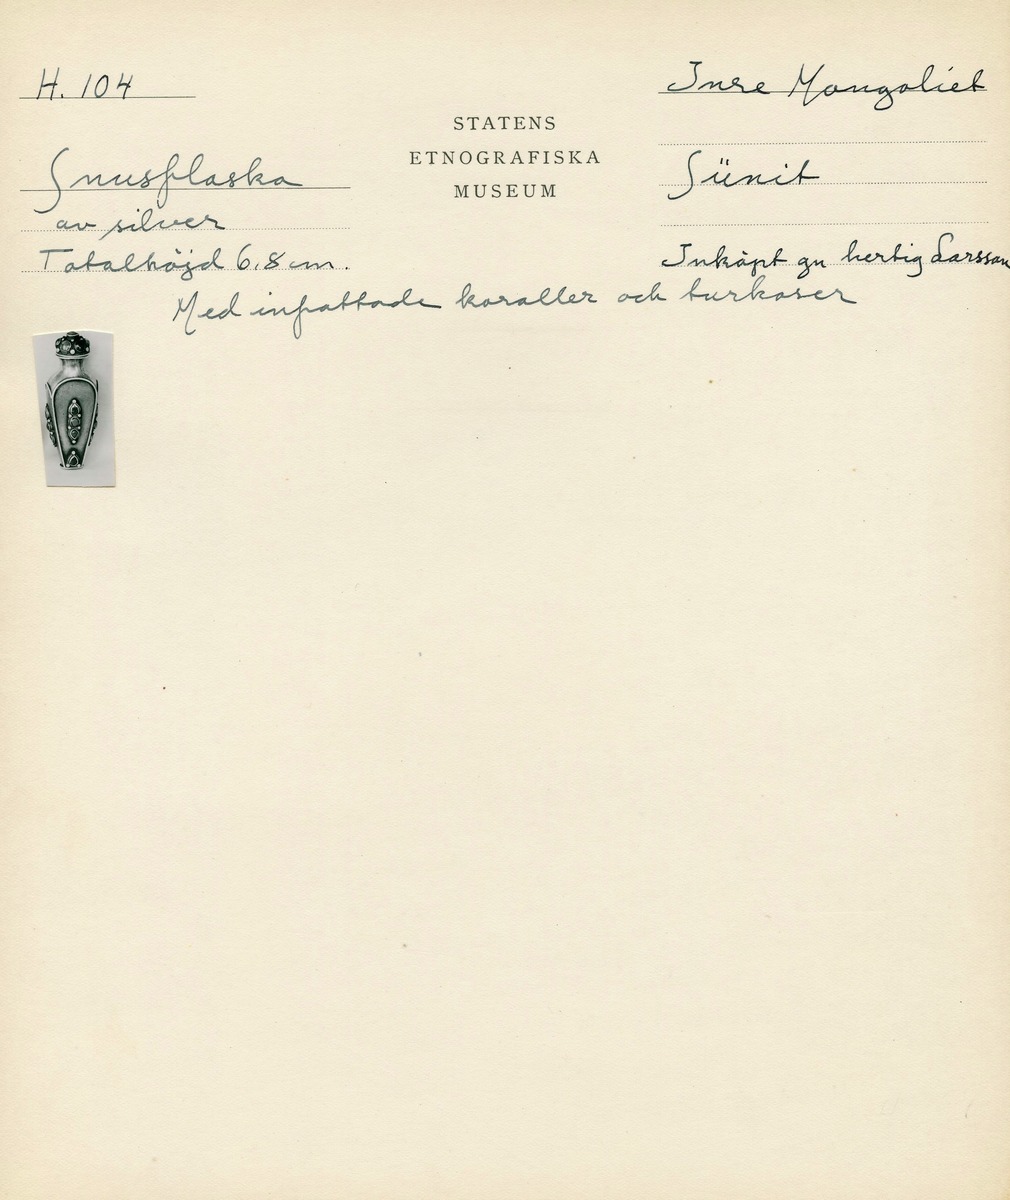 H. 104
Snusflaska
av silver
Totalhöjd 6,8 cm.
STATENS
ETNOGRAFISKA
MUSEUM
Inre Mongoliet
Sünit
Inköpt gn hertig Larsson
Med infattade koraller och turkoser